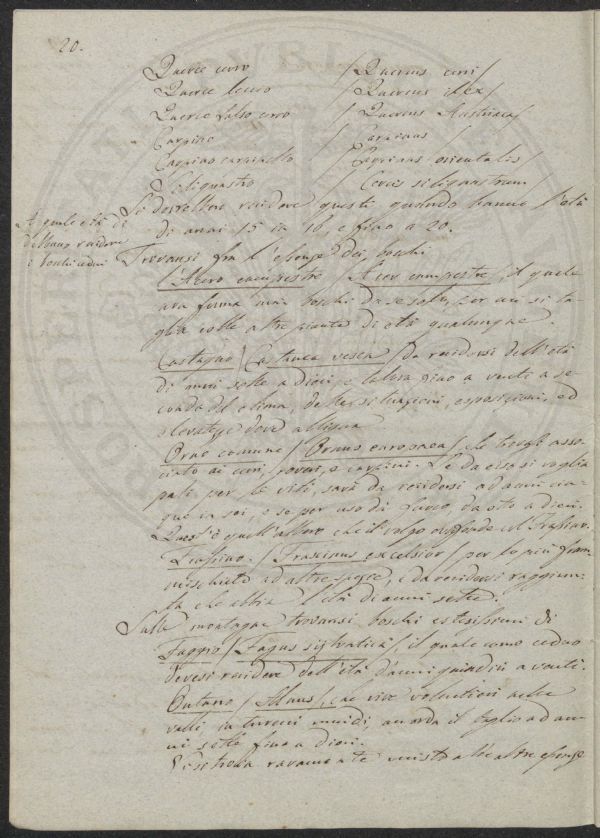 20.
Querce cerro / Quercus cerri /
Querce leccio / Quercus ilex /
Querce falso cerro / Quercus Austriaca /
Carpino / Carpinus /
Carpino carpinello / Carpinus orientalis /
E Siliquastro / Cercis siliquastrum
Si dovrebbero recidere questi quando hanno l'età
di anni 15 in 16, e fino a 20.
A quale età si
debbano recidere
i boschi cedui
Trovansi fra l'essenze dei boschi
L'Acero campestre / Acer campestre /, il quale
ma forma mai boschi da se solo, per cui si ta-
glia colle altre piante di età qualunque.
Castagno / Castanea vesca / da recidersi dell'età
di anni sette a dieci, e talora fino a venti a se-
conda del clima, delle situazioni, esposizioni, ed
elevatezze dove alligna
Orno comune / Ornus europaea / che trovasi asso-
ciato ai cerri, roveri, e carpini. Se da esso si voglia
pali per le viti, sarà da recidersi ad anni cin-
que in sei, e se per uso di fuoco da otto a dieci.
Quest'è quell'albero che il volgo confonde col Frassino.
Frassino / Fraxinus excelsior / per lo più fram-
mischiato ad altre specie, e da recidersi raggiun-
ta che abbia l'età di anni sette.
Sulle montagne trovansi boschi estesissimi di
Faggio / Fagus sylvatica /, il quale come ceduo
devesi recidere dell'età d'anni quindici a venti.
Ontano / Alnus /, che vive volentieri nelle
valli, in terreni umidi, accorda il taglio ad an-
ni sette fino a dieci.
Vi si trova raramente misto all'altre essenze